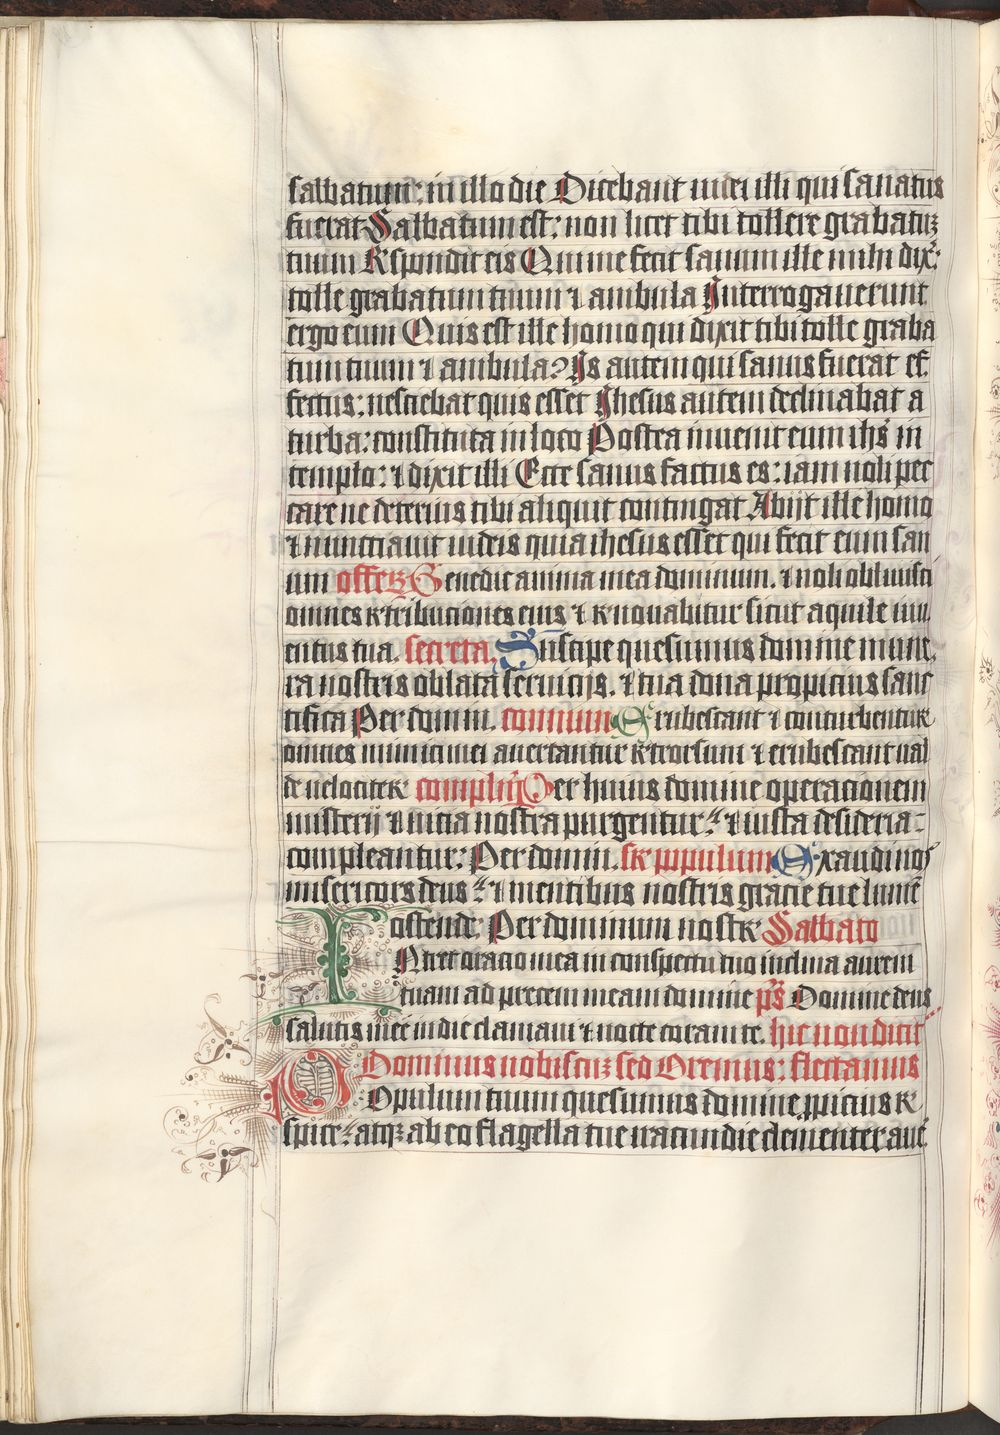 sabbatum: in illo die Dicebant iudei illi qui sanatus
fuerat Sabbatum est: non licet tibi tollere grabatuz
tuum Rspondit eis Qui me fecit sanum ille mihi dix:
tolle grabatum tuum ⁊ ambula Interrogauerunt
ergo eum Quis est ille homo qui dixit tibi tolle graba
tum tuum ⁊ ambula? Is autem qui sanus fuerat ef
fectus: nesciebat quis esset Ihesus autem declinabat a
turba: constituta in loco Postea inuenit eum ihs in
templo: ⁊ dixit illi Ecce sanus factus es: iam noli pec
care ne deterius tibi aliquit contingat Abijt ille homo
⁊ nunctiauit iudeis quia ihesus esset qui fecit eum san
um offerz Benedic anima mea dominum. ⁊ noli obliuisci
omnes retributiones eius ⁊ renouabitur sicut aquile iuu
entus tua. secreta. Suscipe quesumus domine mune,
ra nostris oblata seruicijs. ⁊ tua dona propicius sanc
tifica Per domin. commun Erubescant ⁊ conturbentur
omnes inimici mei auertantur retrorsum ⁊ erubescant ual
de uelociter complur Per huius domine operacionem
misterij ⁊ uicia nostra purgentur: ⁊ iusta desideria
compleantur: Per domin. sr populum Exaudi nos
misericors deus: ⁊ mentibus nostris gracie tue lume
ostende. Per dominum nostr Sabbato
INtret oracio mea in conspectu tuo inclina aurem
tuam ad precem meam domine ps Domine deus
salutis mee in die clamaui ⁊ nocte coram te. hic non dicit
Dominus uobiscuz sed Oremus: flectamus
POpulum tuum quesumus domine ppicius re
spice: atqz ab eo flagella tue iracundie clementer aue